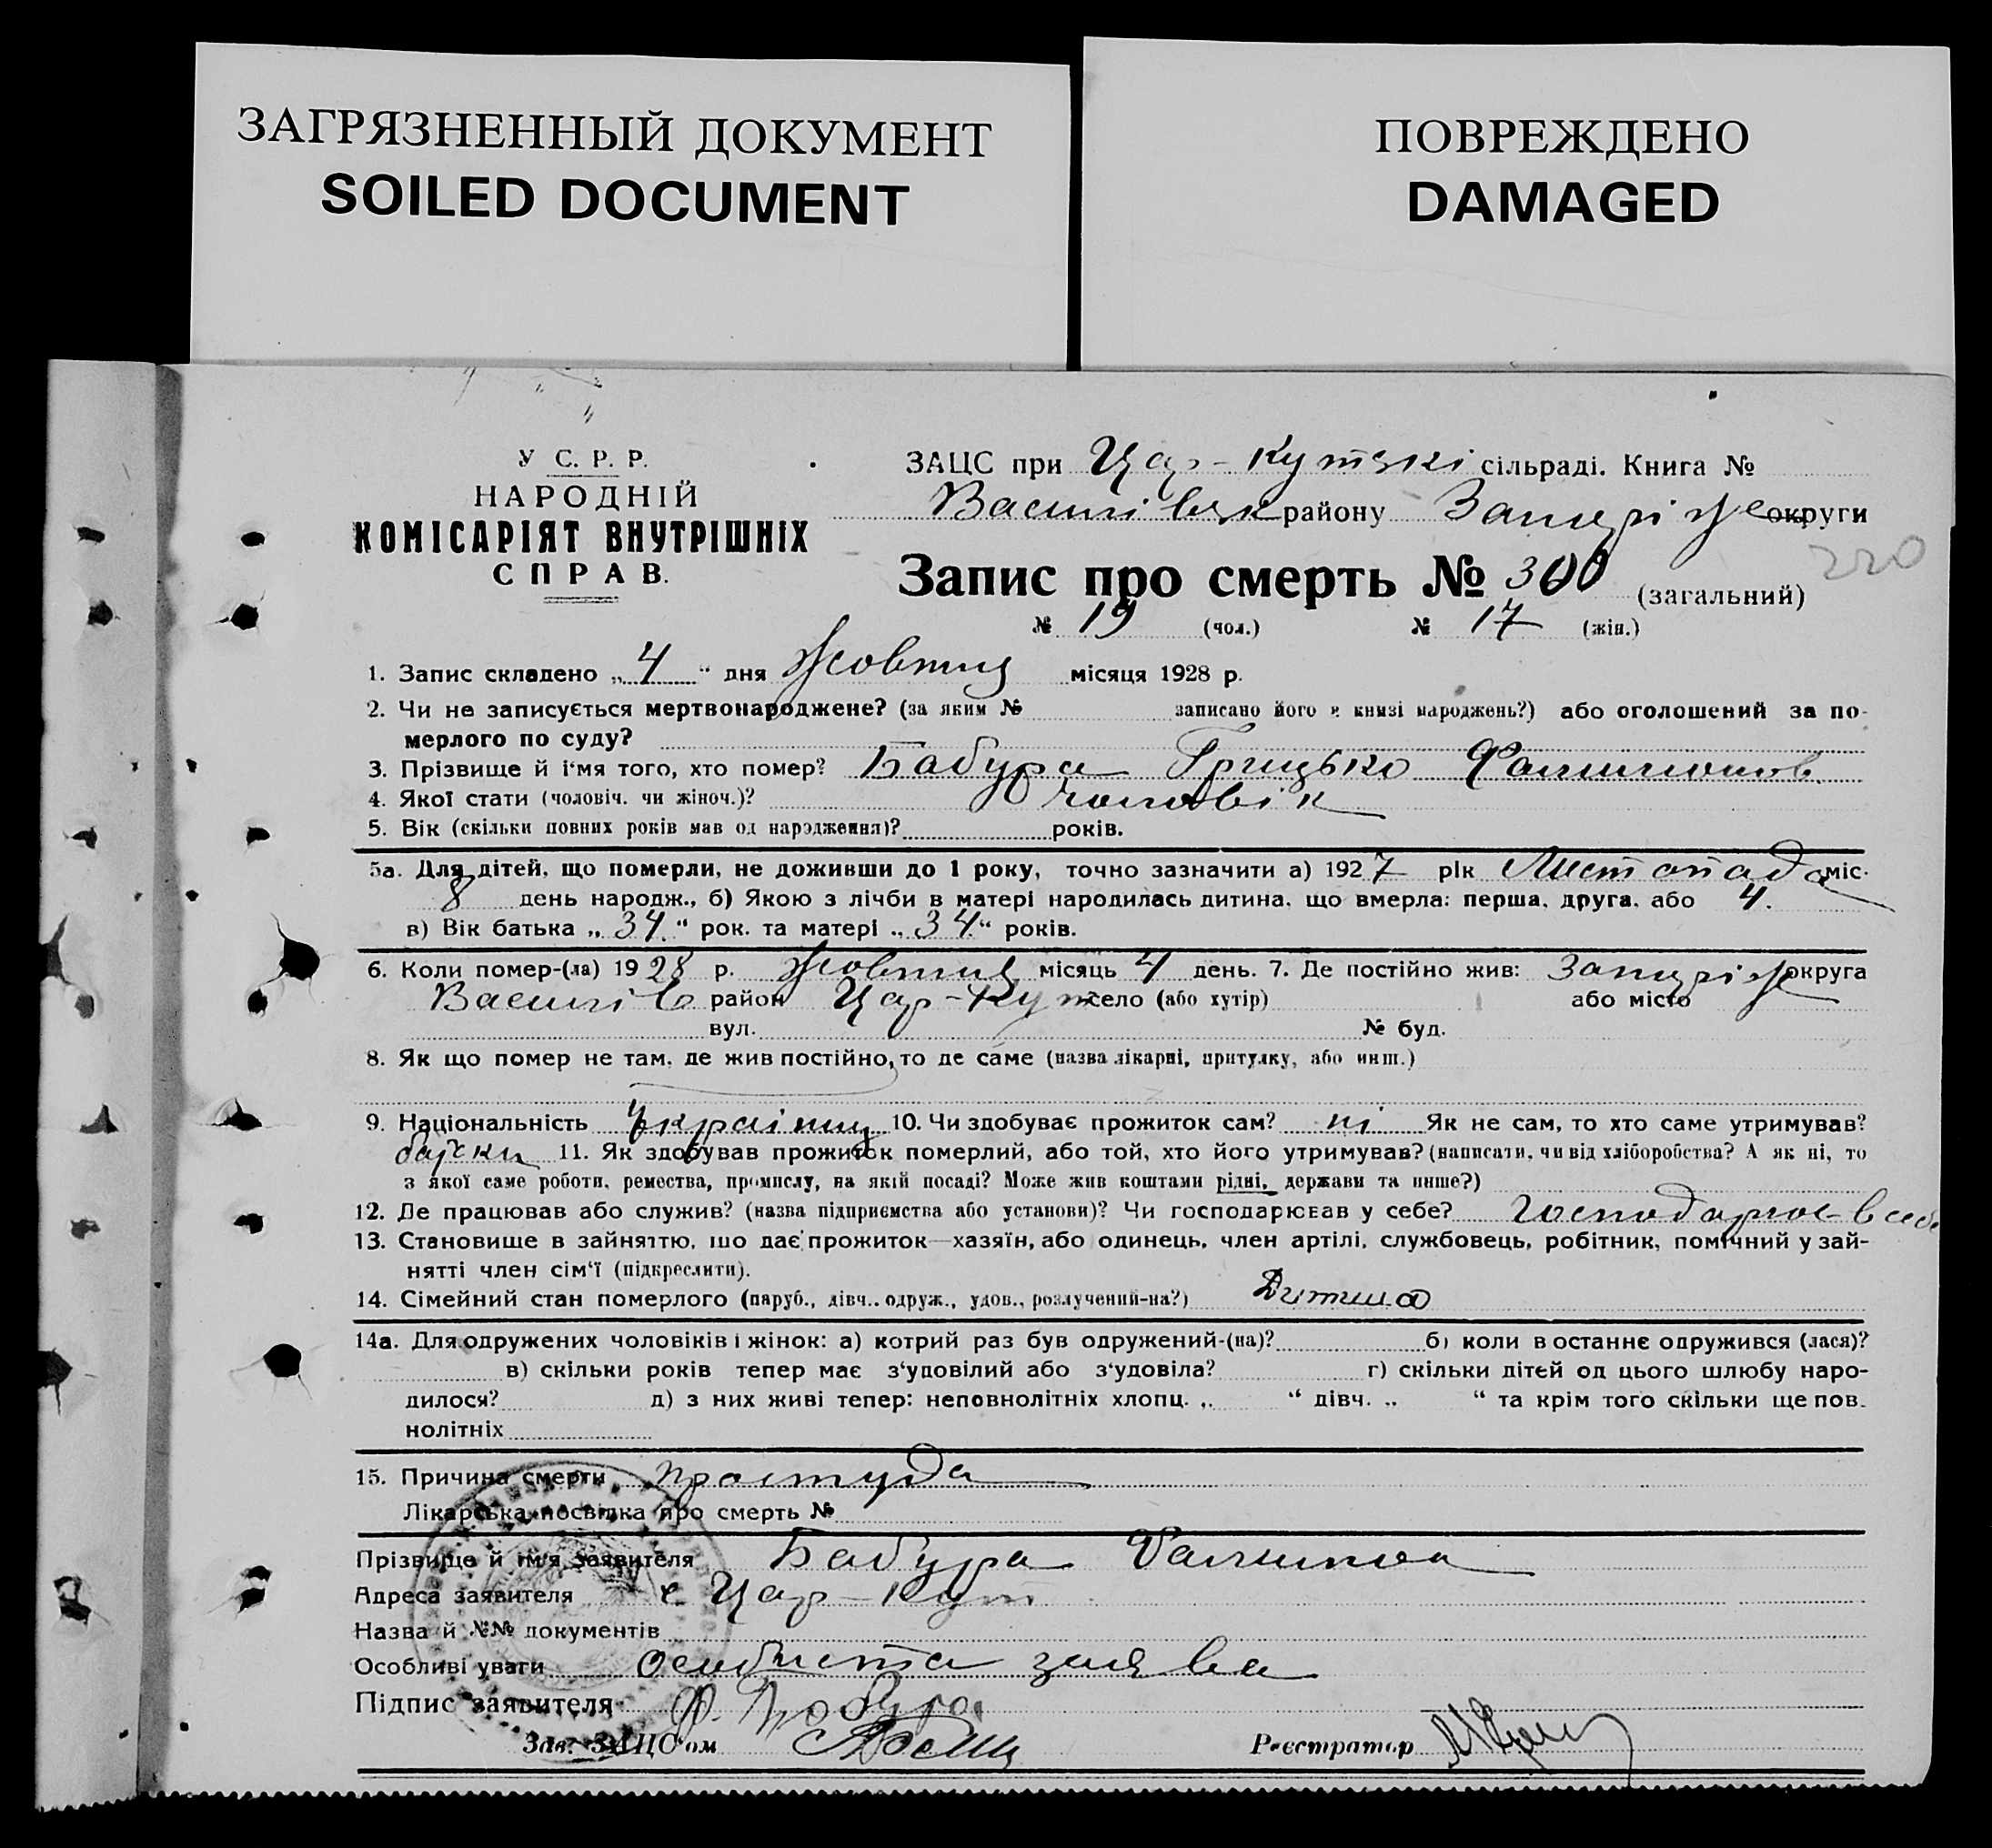 ЗАГРЯЗНЕННЫЙ ДОКУМЕНТ
SOILED DOCUMENT
ПОВРЕЖДЕНО
DAMAGED
У С. Р. Р.
НАРОДНІЙ
КОМІСАРІЯТ ВНУТРІШНІХ
СПРАВ.
ЗАЦС при Цар-Кутській сільраді. Книга №
Василівск району Запоріж округи
Запис про смерть № 300 (загальний)
220
№ 19 (чол.) № 17 (жін.)
1. Запис складено „ 4 “ дня Жовтня місяця 1928 р.
2. Чи не записується мертвонароджене? (за яким № записано його в книзі народжень?) або оголошений за по-
мерлого по суду?
3. Прізвище й і'мя того, хто помер? Бабура Грицько Филимонов.
4. Якої стати (чоловіч. чи жіноч.)? чоловік
5. Вік (скільки повних років мав од народження)? років.
5а. Для дітей, що померли, не доживши до 1 року, точно зазначити а) 1927 рік Листопада міс.
8 день народж., б) Якою з лічби в матері народилась дитина, що вмерла: перша, друга, або 4.
в) Вік батька „ 34 “ рок. та матері „ 34 “ років.
6. Коли помер-(ла) 1928 р. Жовтня місяць 4 день. 7. Де постійно жив: Запоріж округа
Василів район Цар-Кут село (або хутір) або місто
вул. № буд.
8. Як що помер не там, де жив постійно, то де саме (назва лікарні, притулку, або инш.)
9. Національність Українець 10. Чи здобуває прожиток сам? ні Як не сам, то хто саме утримував?
батьки 11. Як здобував прожиток померлий, або той, хто його утримував? (написати, чи від хліборобства? А як ні, то
з якої саме роботи, ремества, промислу, на якій посаді? Може жив коштами рідні, держави та инше?)
12. Де працював або служив? (назва підприємства або установи)? Чи господарював у себе? Господарює в себе
13. Становище в зайняттю, що дає прожиток—хазяїн, або одинець, член артілі, службовець, робітник, помічний у зай-
нятті член сім'ї (підкреслити).
14. Сімейний стан померлого (паруб., дівч., одруж., удов., розлучений-на?) Дитина
14а. Для одружених чоловіків і жінок: а) котрий раз був одружений-(на)? б) коли в останнє одружився (лася)?
в) скільки років тепер має з'удовілий або з'удовіла? г) скільки дітей од цього шлюбу наро-
дилося? д) з них живі тепер: неповнолітніх хлопц. „ “ дівч. „ “ та крім того скільки ще пов.
нолітніх
15. Причина смерти простуда
Лікарська посвідка про смерть №
Прізвище й ім'я заявителя Бабура Филимон
Адреса заявителя с. Цар-Кут
Назва й №№ документів
Особливі уваги особиста заява
Підпис заявителя Ф. Бабура
Зав. ЗАЦС'ом
Реєстратор